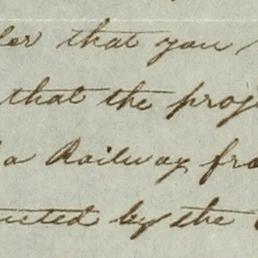 that you
that the proj
a Railway fro
ucted by the